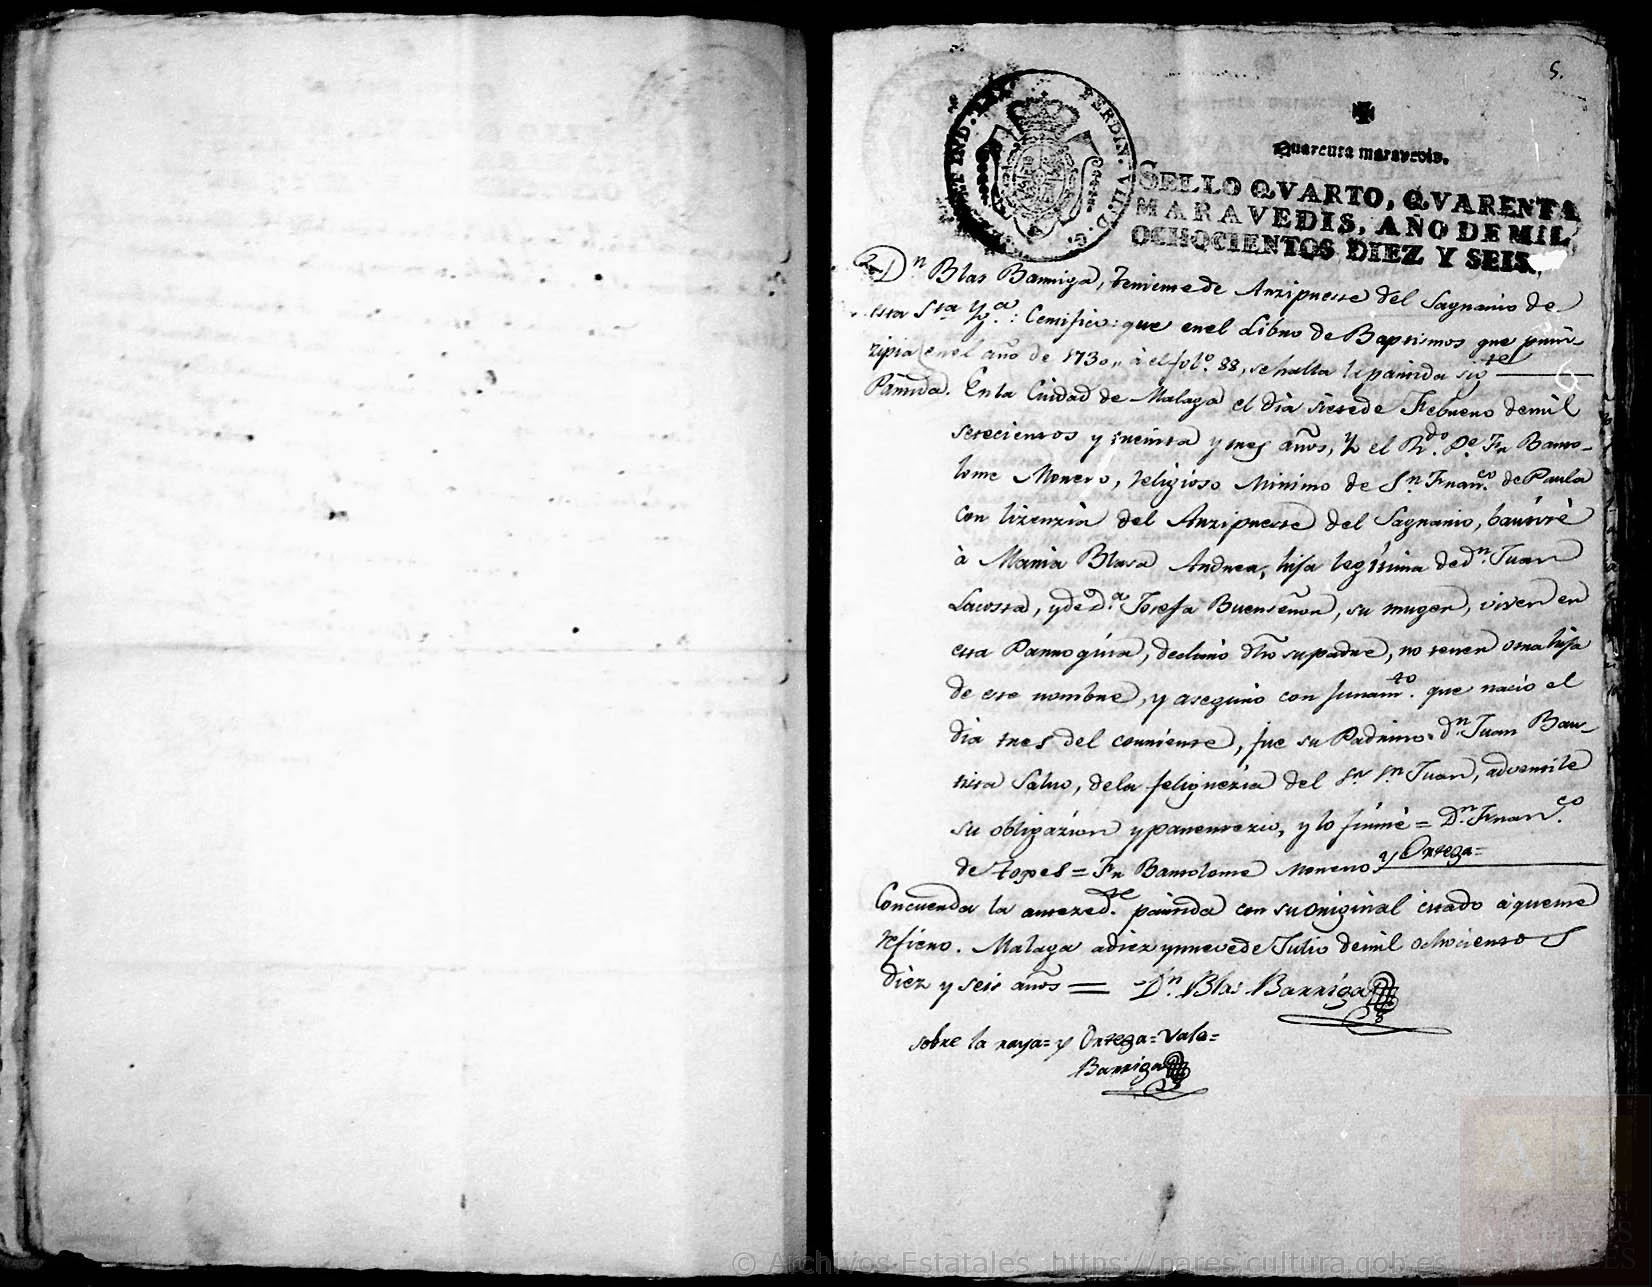 5.
Quarenta maravedis.
SELLO QVARTO, QVARENTA
MARAVEDIS, AÑO DE MIL
OCHOCIENTOS DIEZ Y SEIS.
FERDIN. VII. D. G. ET IND. REX
Dn Blas Barriga, teniente de Arzipreste del Sagrario de
esta Sta Yga: Certifico: que en el Libro de Baptismos que prin-
zipia en el año de 1730,, à el folo. 88, se halla la partida sigte
Partida. En la Ciudad de Malaga el dia siete de Febrero de mil
setecientos y treinta y tres años, Yo el Rdo. Pe. Fr Barto-
lome Moreno, religioso Minimo de Sn Franco. de Paula
con lizenzia del Arzipreste del Sagrario, bautizè
à Maria Blasa Andrea, hija legitima de dn. Juan
Lacosta, y de Da. Josefa Buenseñor, su muger, viven en
esta Parroquia, declarò dho su padre, no tener otra hija
de este nombre, y asegurò con juramto. que naciò el
dia tres del corriente, fue su Padrino dn Juan Bau-
tista Salvo, de la feligrezia del Sr Sn Juan, advertile
su obligazion y parentezco, y lo firmè = Dn. Franco.
de Lopes = Fr Bartolome Moreno y Ortega=
Concuerda la antezedte. partida con su Original citado à que me
refiero. Malaga a diez y nueve de Julio de mil ochocientos
diez y seis años = Dn. Blas Barriga
sobre la raya= y Ortega= Vale=
Barriga
© Archivos Estatales https://pares.cultura.gob.es